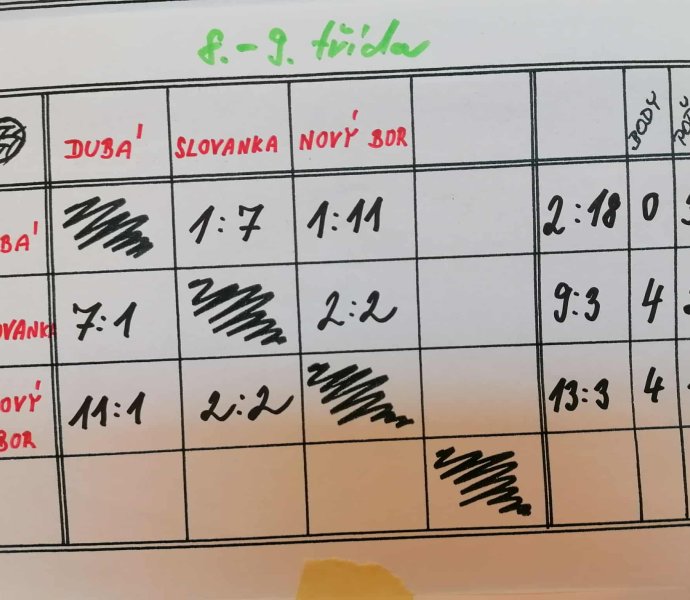 8.-9. třída
DUBÁ SLOVANKA NOVÝ BOR BODY
BÁ 1:7 1:11 2:18 0
OVANKA 7:1 2:2 9:3 4
OVÝ BOR 11:1 2:2 13:3 4